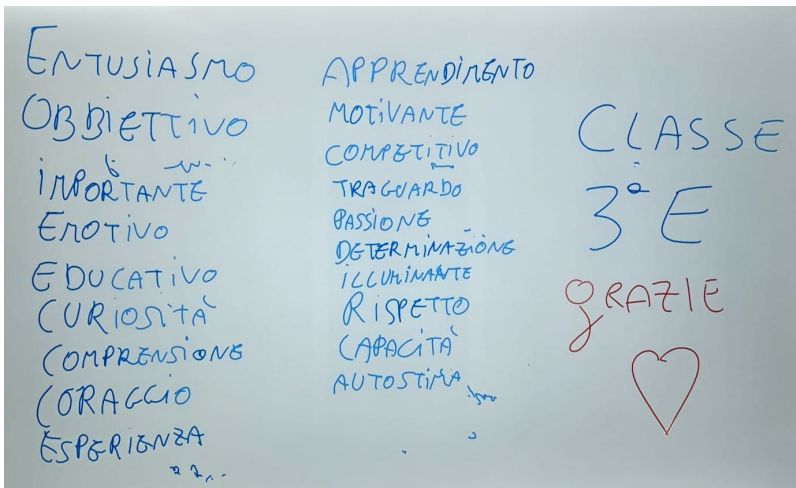 ENTUSIASMO
OBBIETTIVO
IMPORTANTE
EMOTIVO
EDUCATIVO
CURIOSITÀ
COMPRENSIONE
CORAGGIO
ESPERIENZA
APPRENDIMENTO
MOTIVANTE
COMPETITIVO
TRAGUARDO
PASSIONE
DETERMINAZIONE
ILLUMINANTE
RISPETTO
CAPACITÀ
AUTOSTIMA
CLASSE
3ª E
GRAZIE